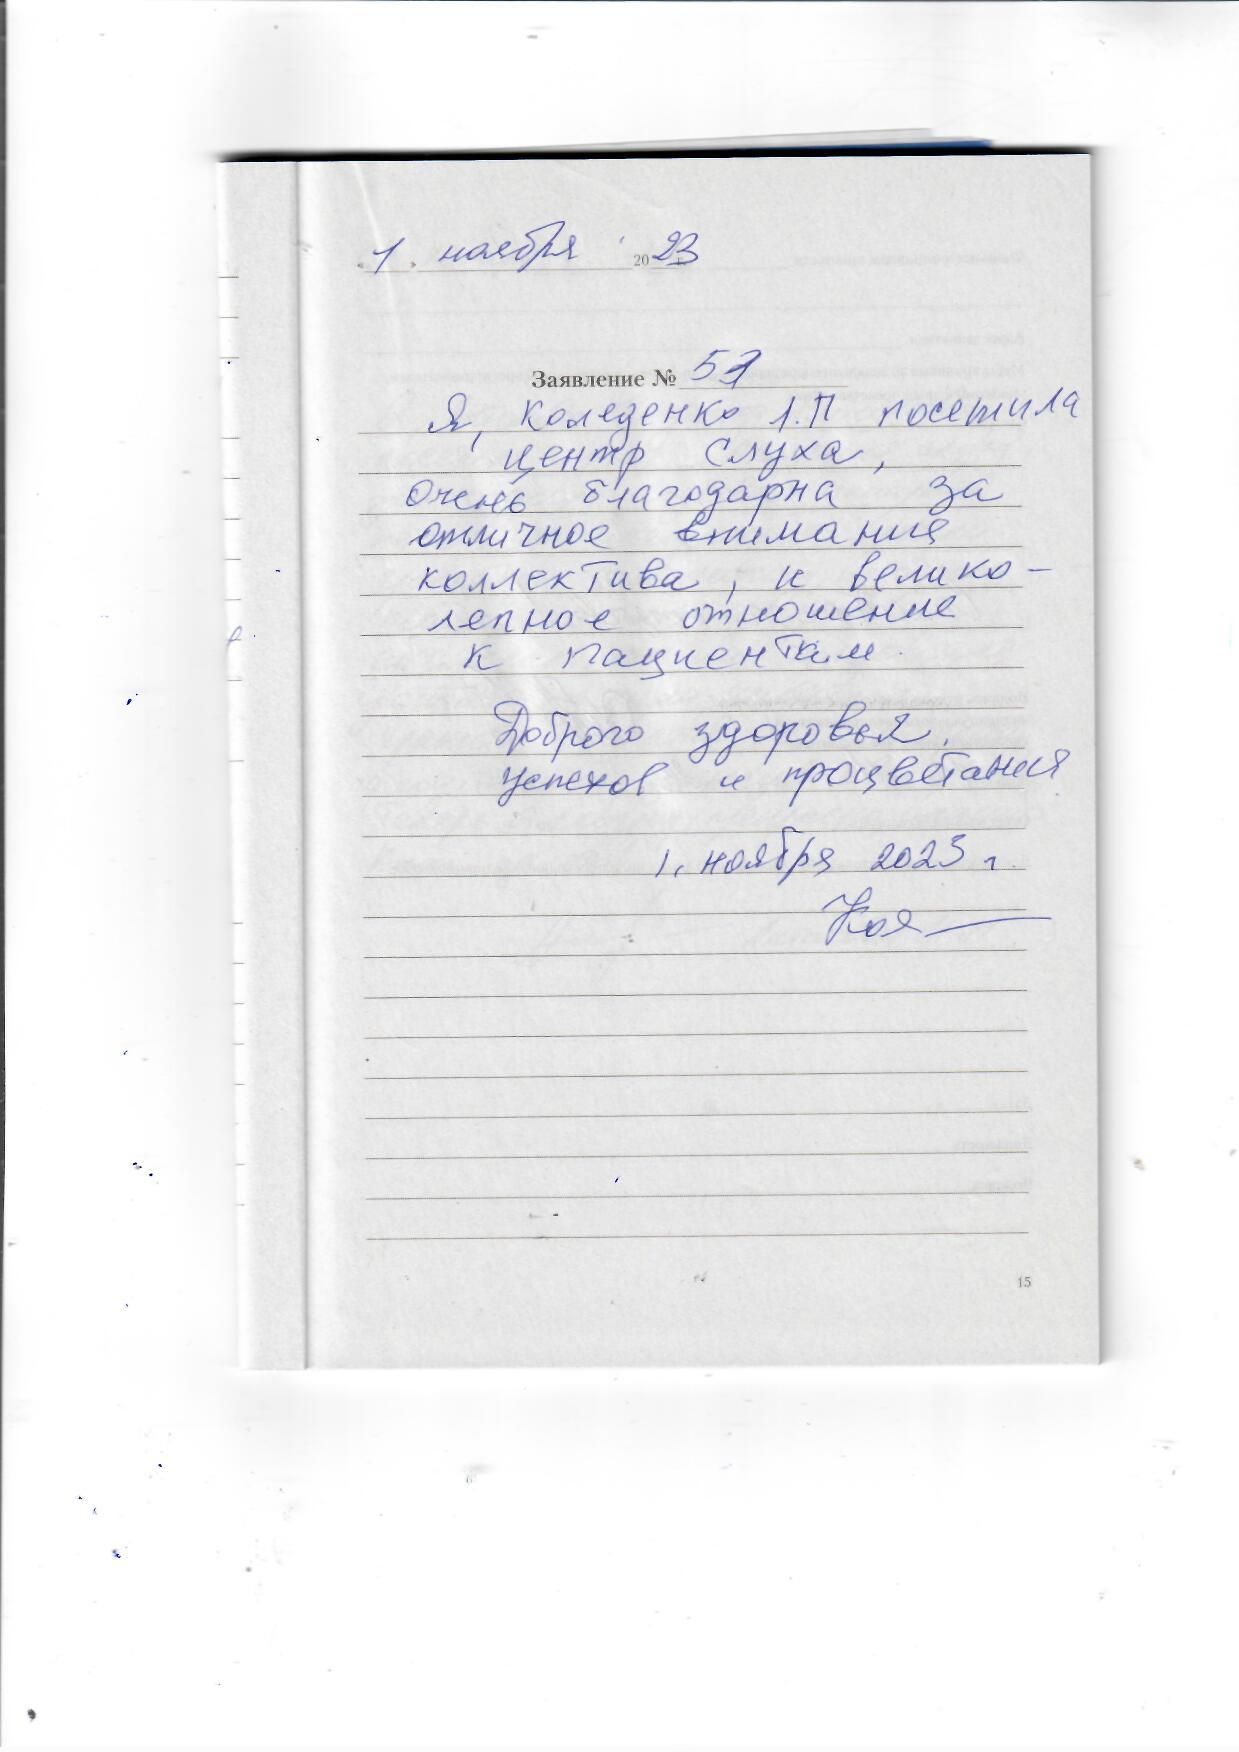 « 1 » ноября 2023
Заявление №
Я, Коледенко Л.П посетила
центр Слуха,
очень благодарна за
отличное внимание
коллектива, и велико-
лепное отношение
к пациентам.
Доброго здоровья,
успехов и процветания
1. ноября 2023 г.
15